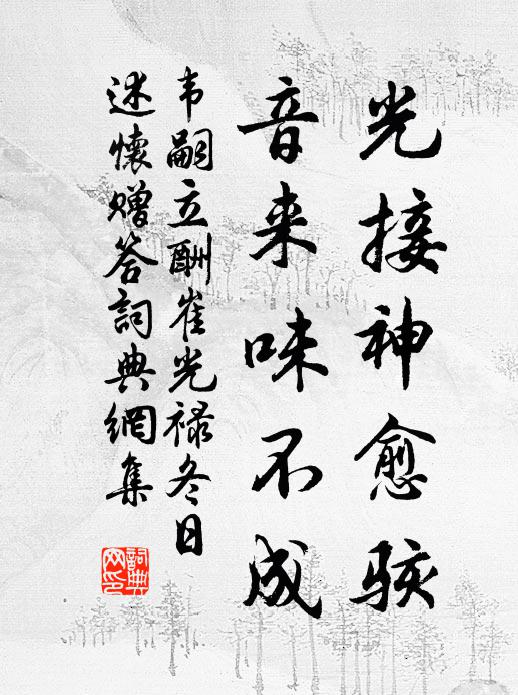 光接神愈骇
音来味不成
韦嗣立酬崔光禄冬日
述懷赠答詞典網集
詞典网印